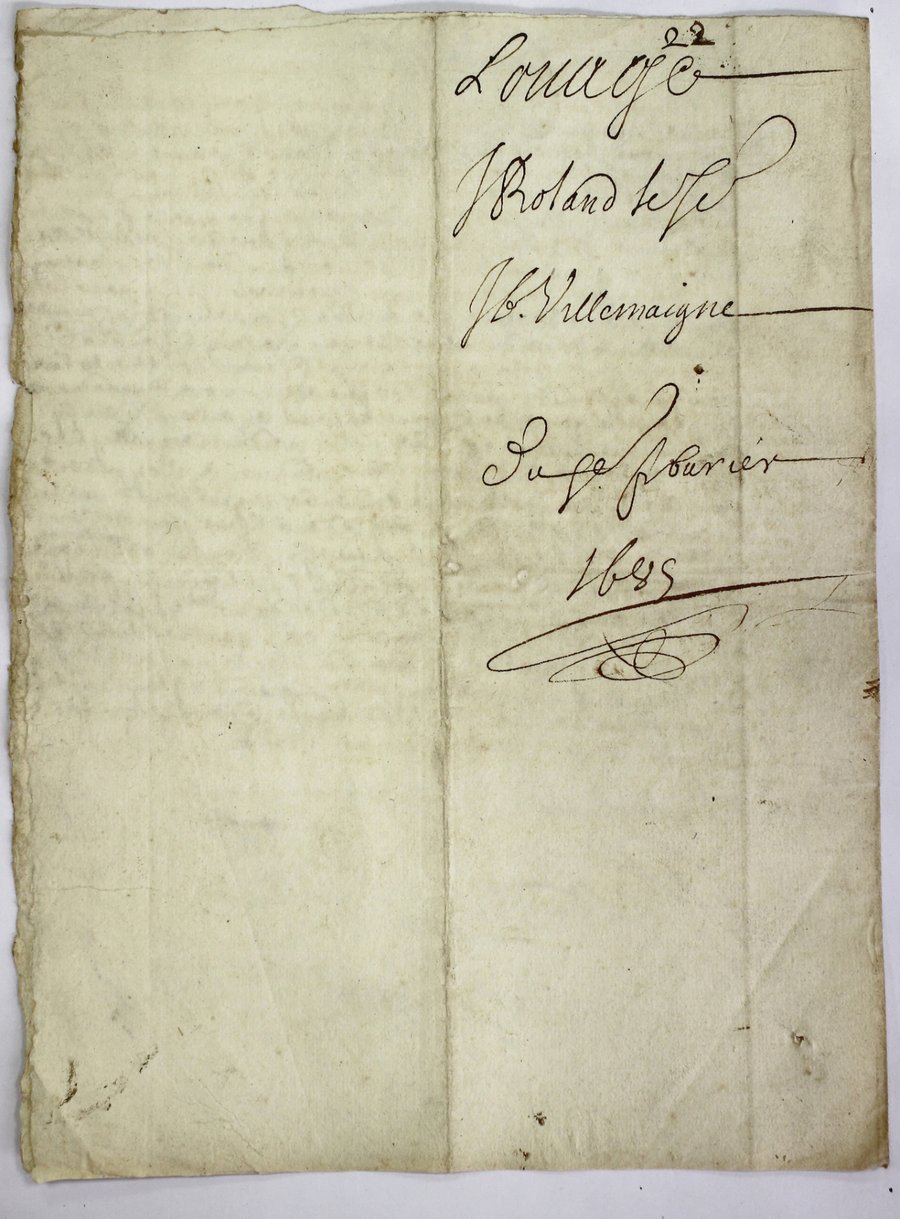 22
Louage
J Roland le Je
Jb. Villemaigne
Du 9e fburier
1685